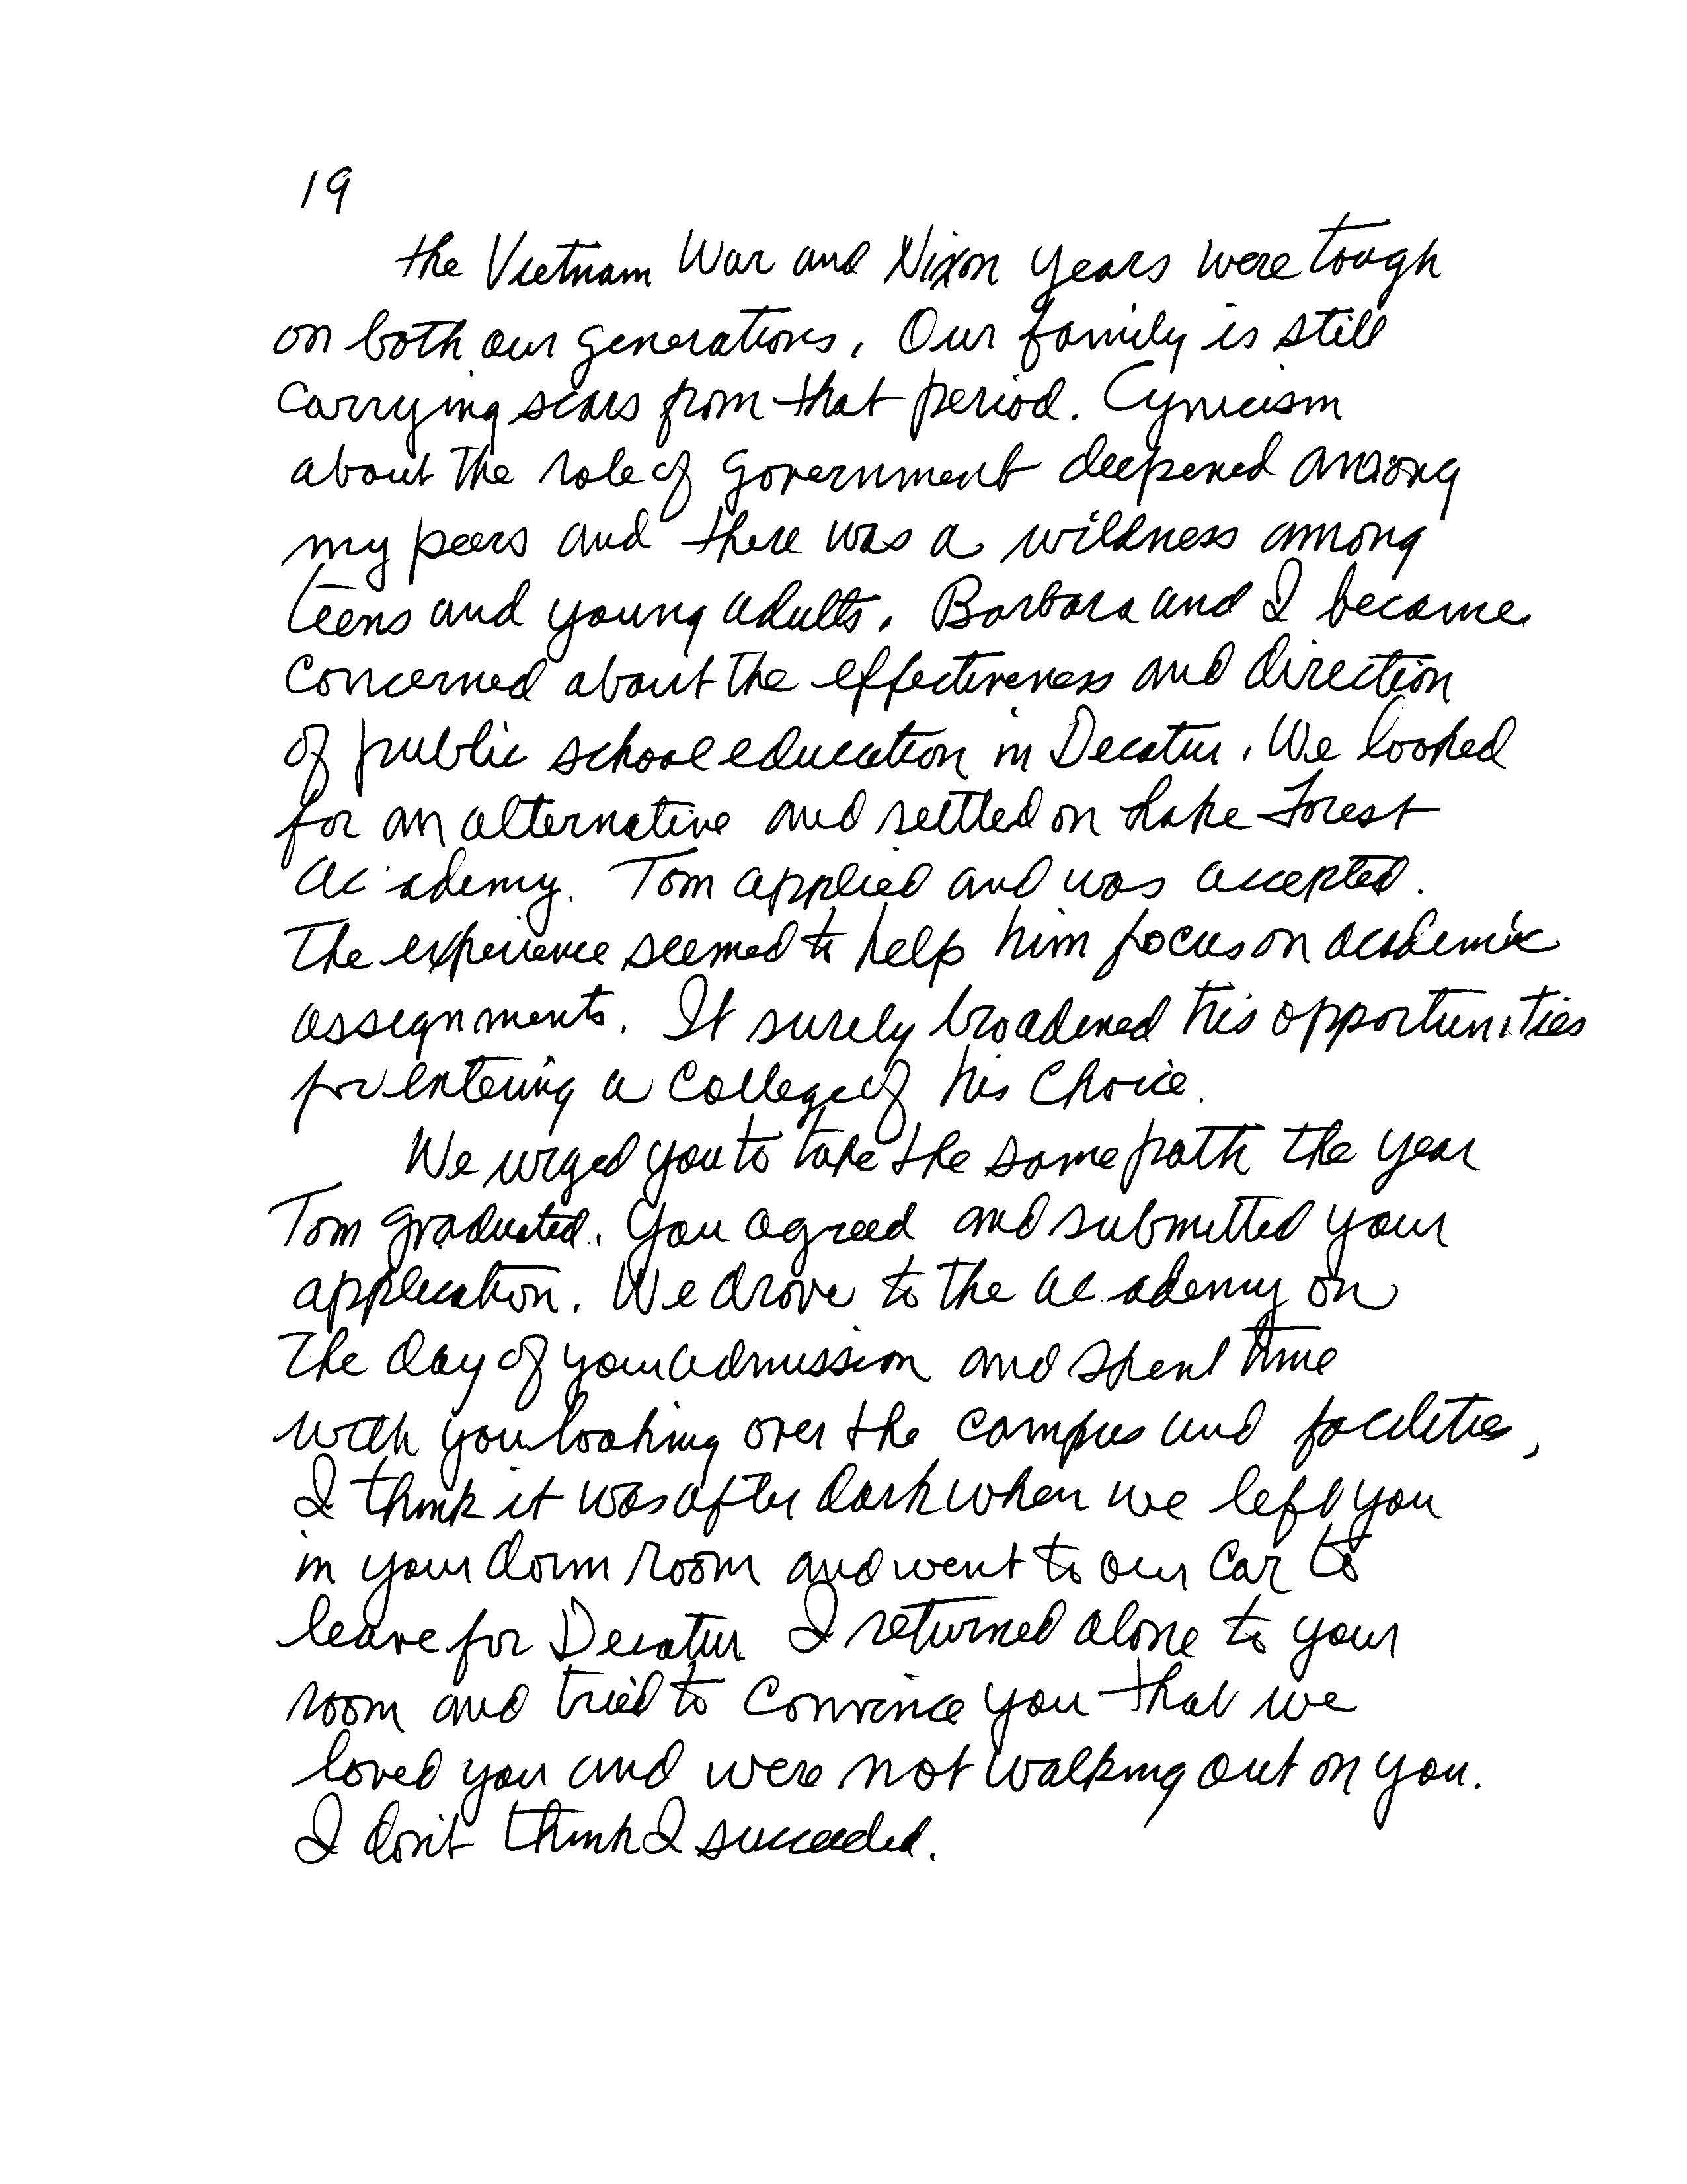 19
the Vietnam War and Nixon years were tough
on both our generations. Our family is still
carrying scars from that period. Cynicism
about the role of government deepened among
my peers and there was a wildness among
teens and young adults. Barbara and I became
concerned about the effectiveness and direction
of public school education in Decatur. We looked
for an alternative and settled on Lake Forest
academy. Tom applied and was accepted.
The experience seemed to help him focus on academic
assignments. It surely broadened his opportunities
for entering a college of his choice.
We urged you to take the same path the year
Tom graduated. You agreed and submitted your
application. We drove to the academy on
the day of your admission and spent time
with you looking over the campus and facilities,
I think it was after dark when we left you
in your dorm room and went to our car to
leave for Decatur. I returned alone to your
room and tried to convince you that we
loved you and were not walking out on you.
I don't think I succeeded.